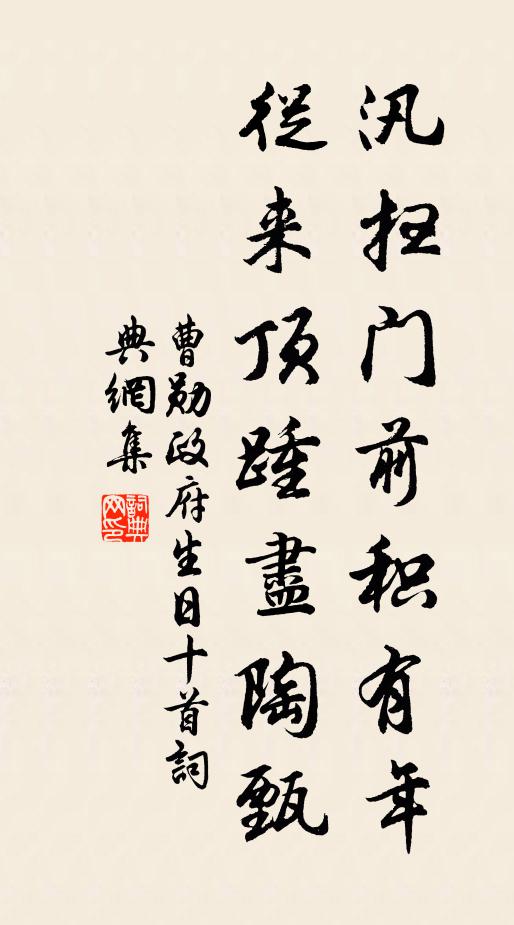 汛扫门前积有年
從来顶踵盡陶甄
曹勋政府生日十首詞
典網集
詞典网印